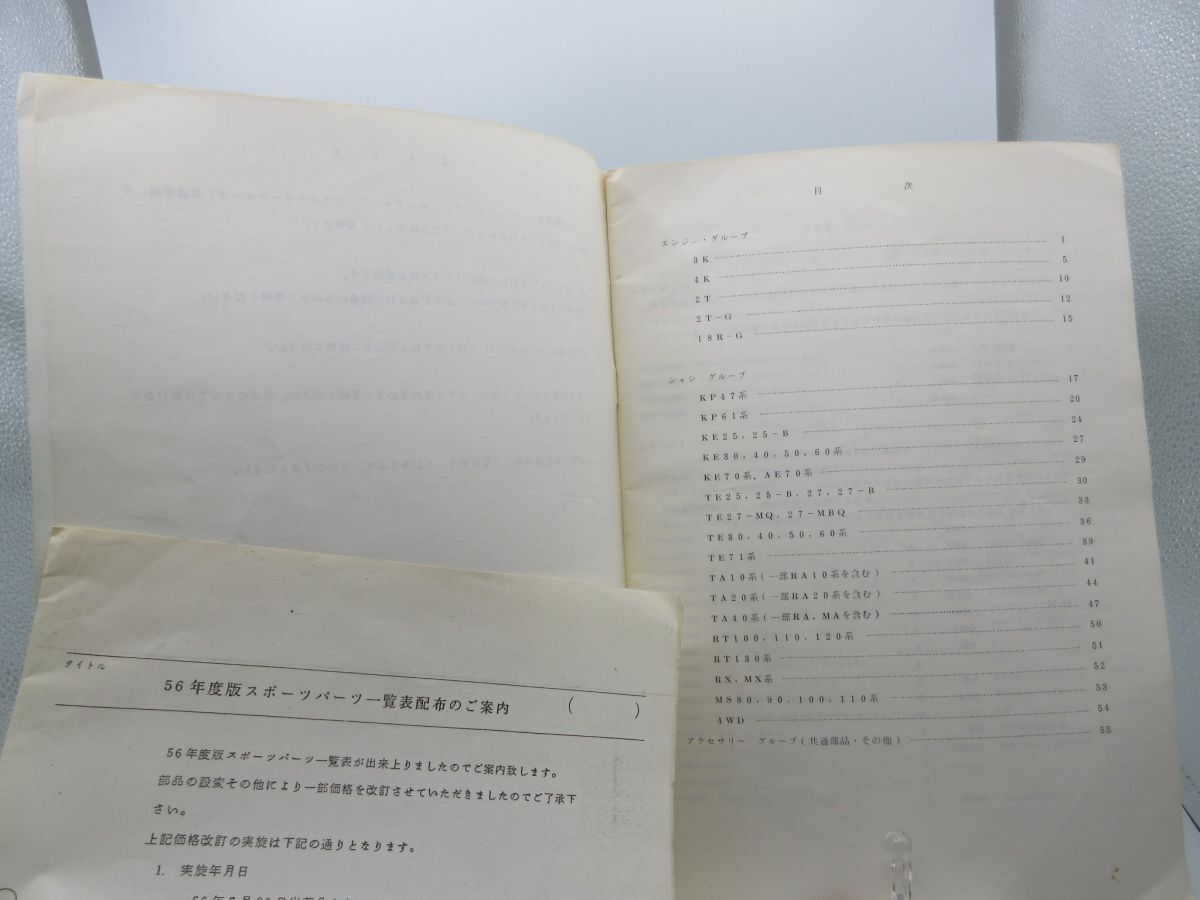 目次
エンジン・グループ
3K 1
4K 5
2T 10
2T-G 12
18R-G 15
シャシ グループ
KP47系 17
KP61系 20
KE25，25-B 24
KE30，40，50，60系 27
KE70系、AE70系 29
TE25，25-B，27，27-B 30
TE27-MQ，27-MBQ 33
TE30，40，50，60系 36
TE71系 39
TA10系(一部RA10系を含む) 41
TA20系(一部RA20系を含む) 44
TA40系(一部RA，MAを含む) 47
RT100，110，120系 50
RT130系 51
RX，MX系 52
MS80，90，100，110系 53
4WD 54
アクセサリー グループ(共通部品・その他) 55
タイトル
56年度版スポーツパーツ一覧表配布のご案内 ( )
56年度版スポーツパーツ一覧表が出来上りましたのでご案内致します。
部品の設変その他により一部価格を改訂させていただきましたのでご了承下
さい。
上記価格改訂の実施は下記の通りとなります。
1. 実施年月日